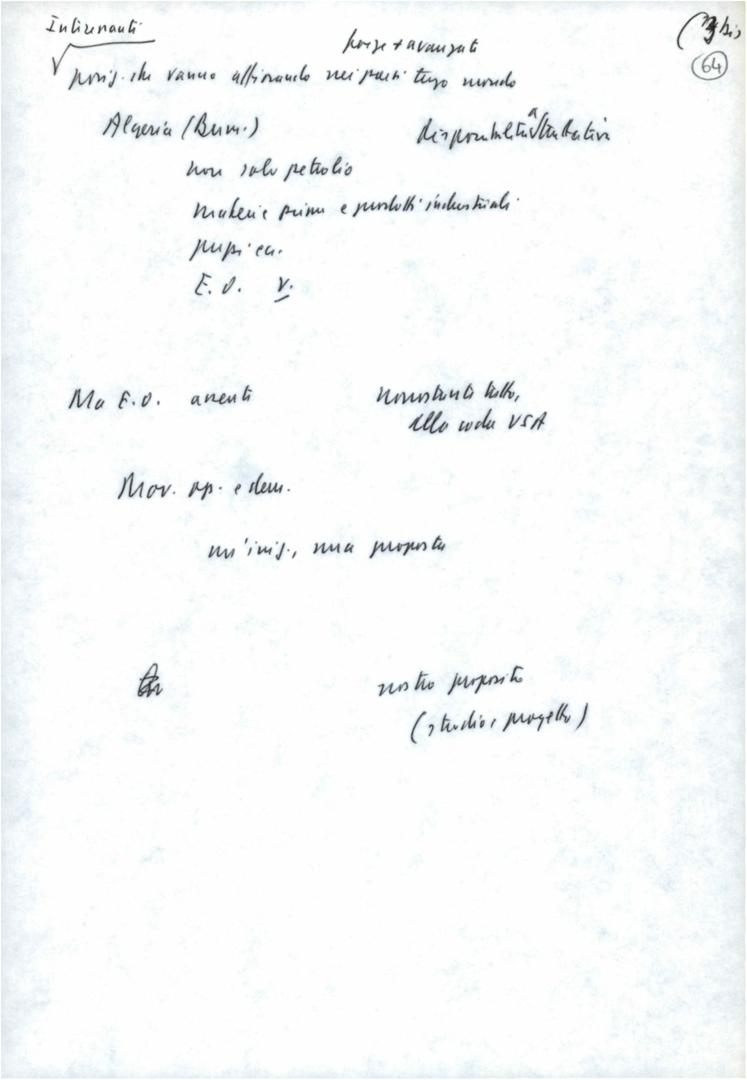 Interessanti
(7 bis)
64
forze + avanzate
posiz. che vanno affiorando nei paesi terzo mondo
Algeria (Bum.)
disponibilità a trattativa
non solo petrolio
materie prime e prodotti industriali
E.O. V.
Ma E.O. assente
nonostante tutto,
alla coda USA
Mov. op. e dem.
un'iniz., una proposta
nostro proposito
(studio e progetto)